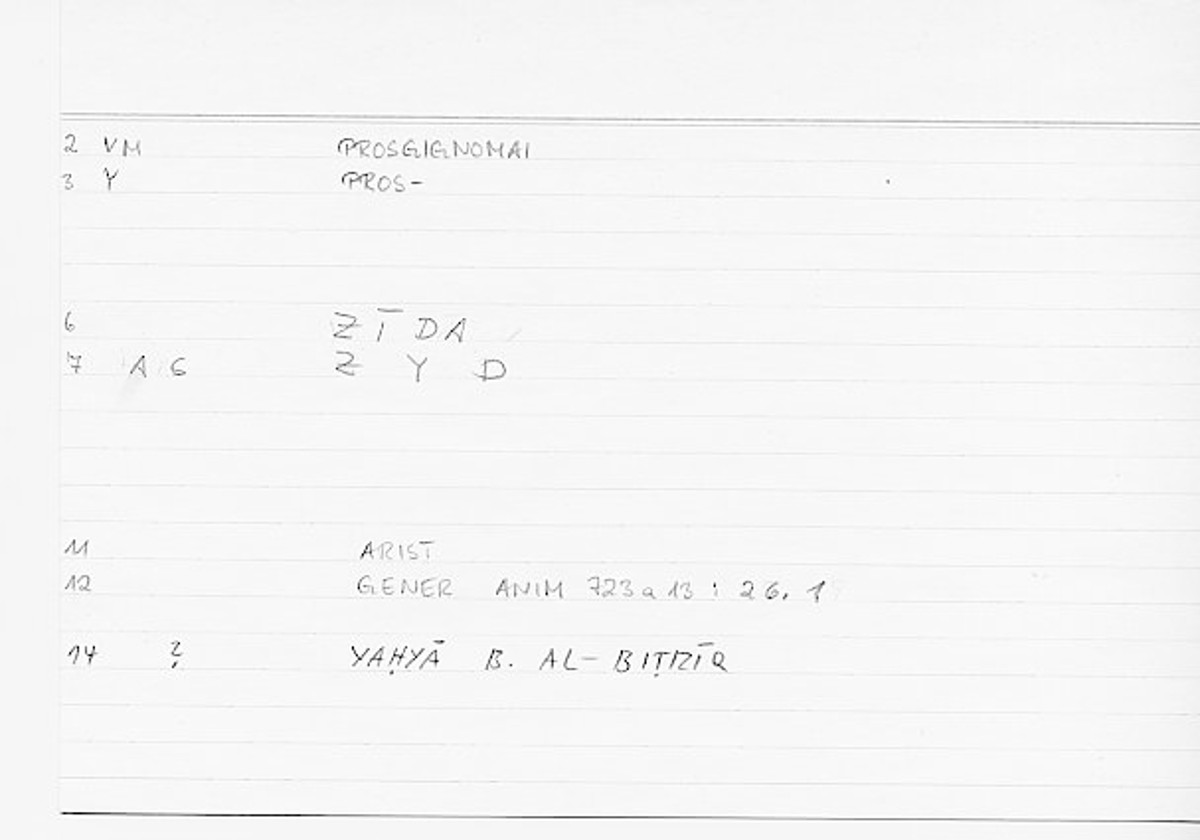 2 VM PROSGIGNOMAI
3 Y PROS-
6 ZĪDA
7 A6 Z Y D
11 ARIST
12 GENER ANIM 723a13 : 26.1
14 ? YAḤYĀ B. AL-BIṬRĪQ